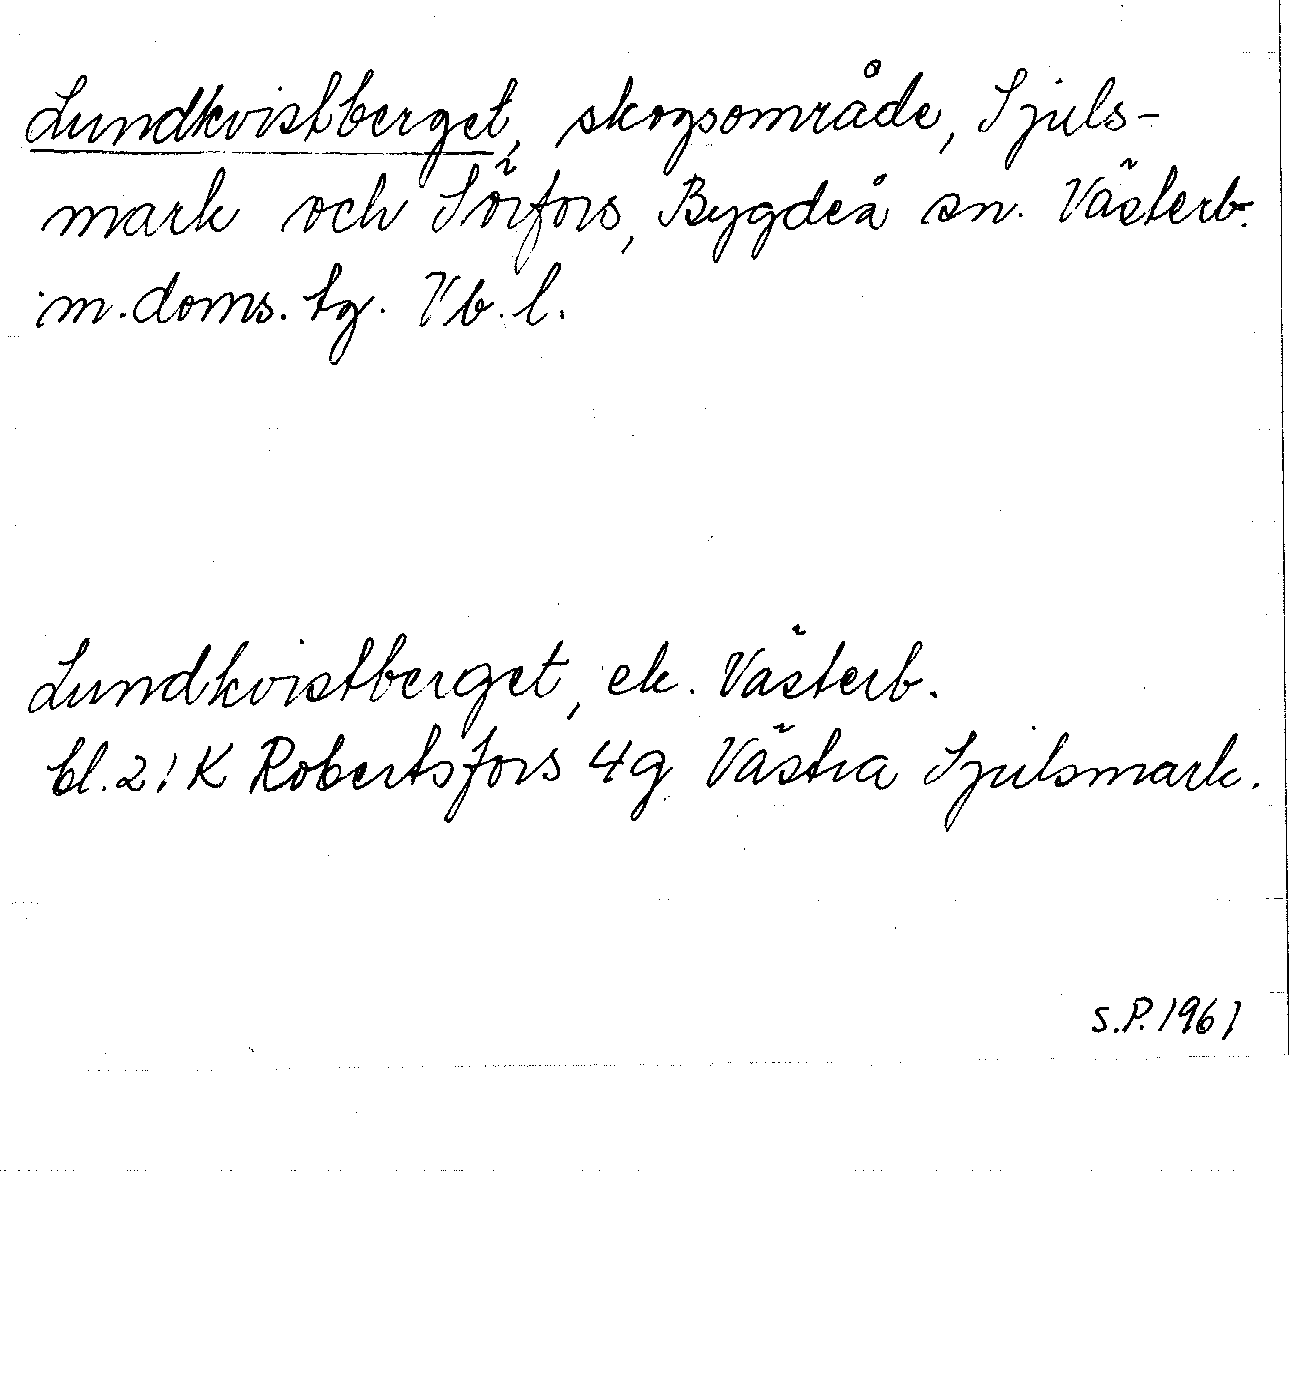 Lundkvistberget, skogsområde, Sjuls-
mark och Sörfors, Bygdeå sn. Västerb.
m. doms. tg. Vb. l.
Lundkvistberget, ek. Västerb.
bl. 21K Robertsfors 4g Västra Sjulsmark.
S.P. 1961